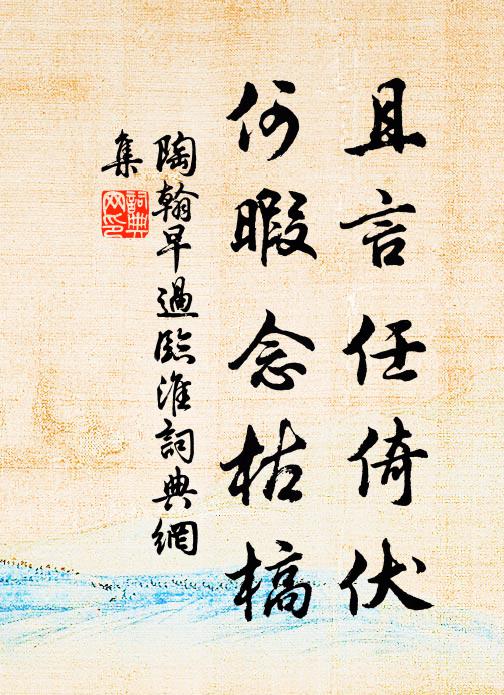 且言任倚伏
何暇念枯槁
陶翰早過臨淮詞典網
集
詞典
网印